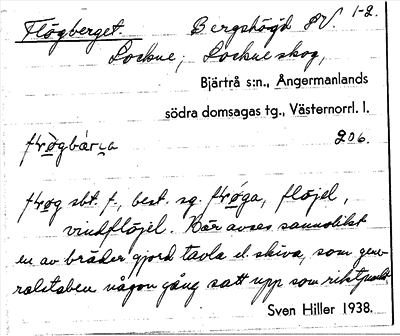 Flögberget. Bergshöjd SV. 1-2.
Lockne, Lockneskog,
Bjärtrå s:n., Ångermanlands
södra domsagas tg., Västernorrl. l.
206.
sbt. f., best. sg. flöjel,
vindflöjel. Här avses sannolikt
en av bräder gjord tavla el. skiva, som gene-
ralstaben någon gång satt upp som riktpunkt.
Sven Hiller 1938.